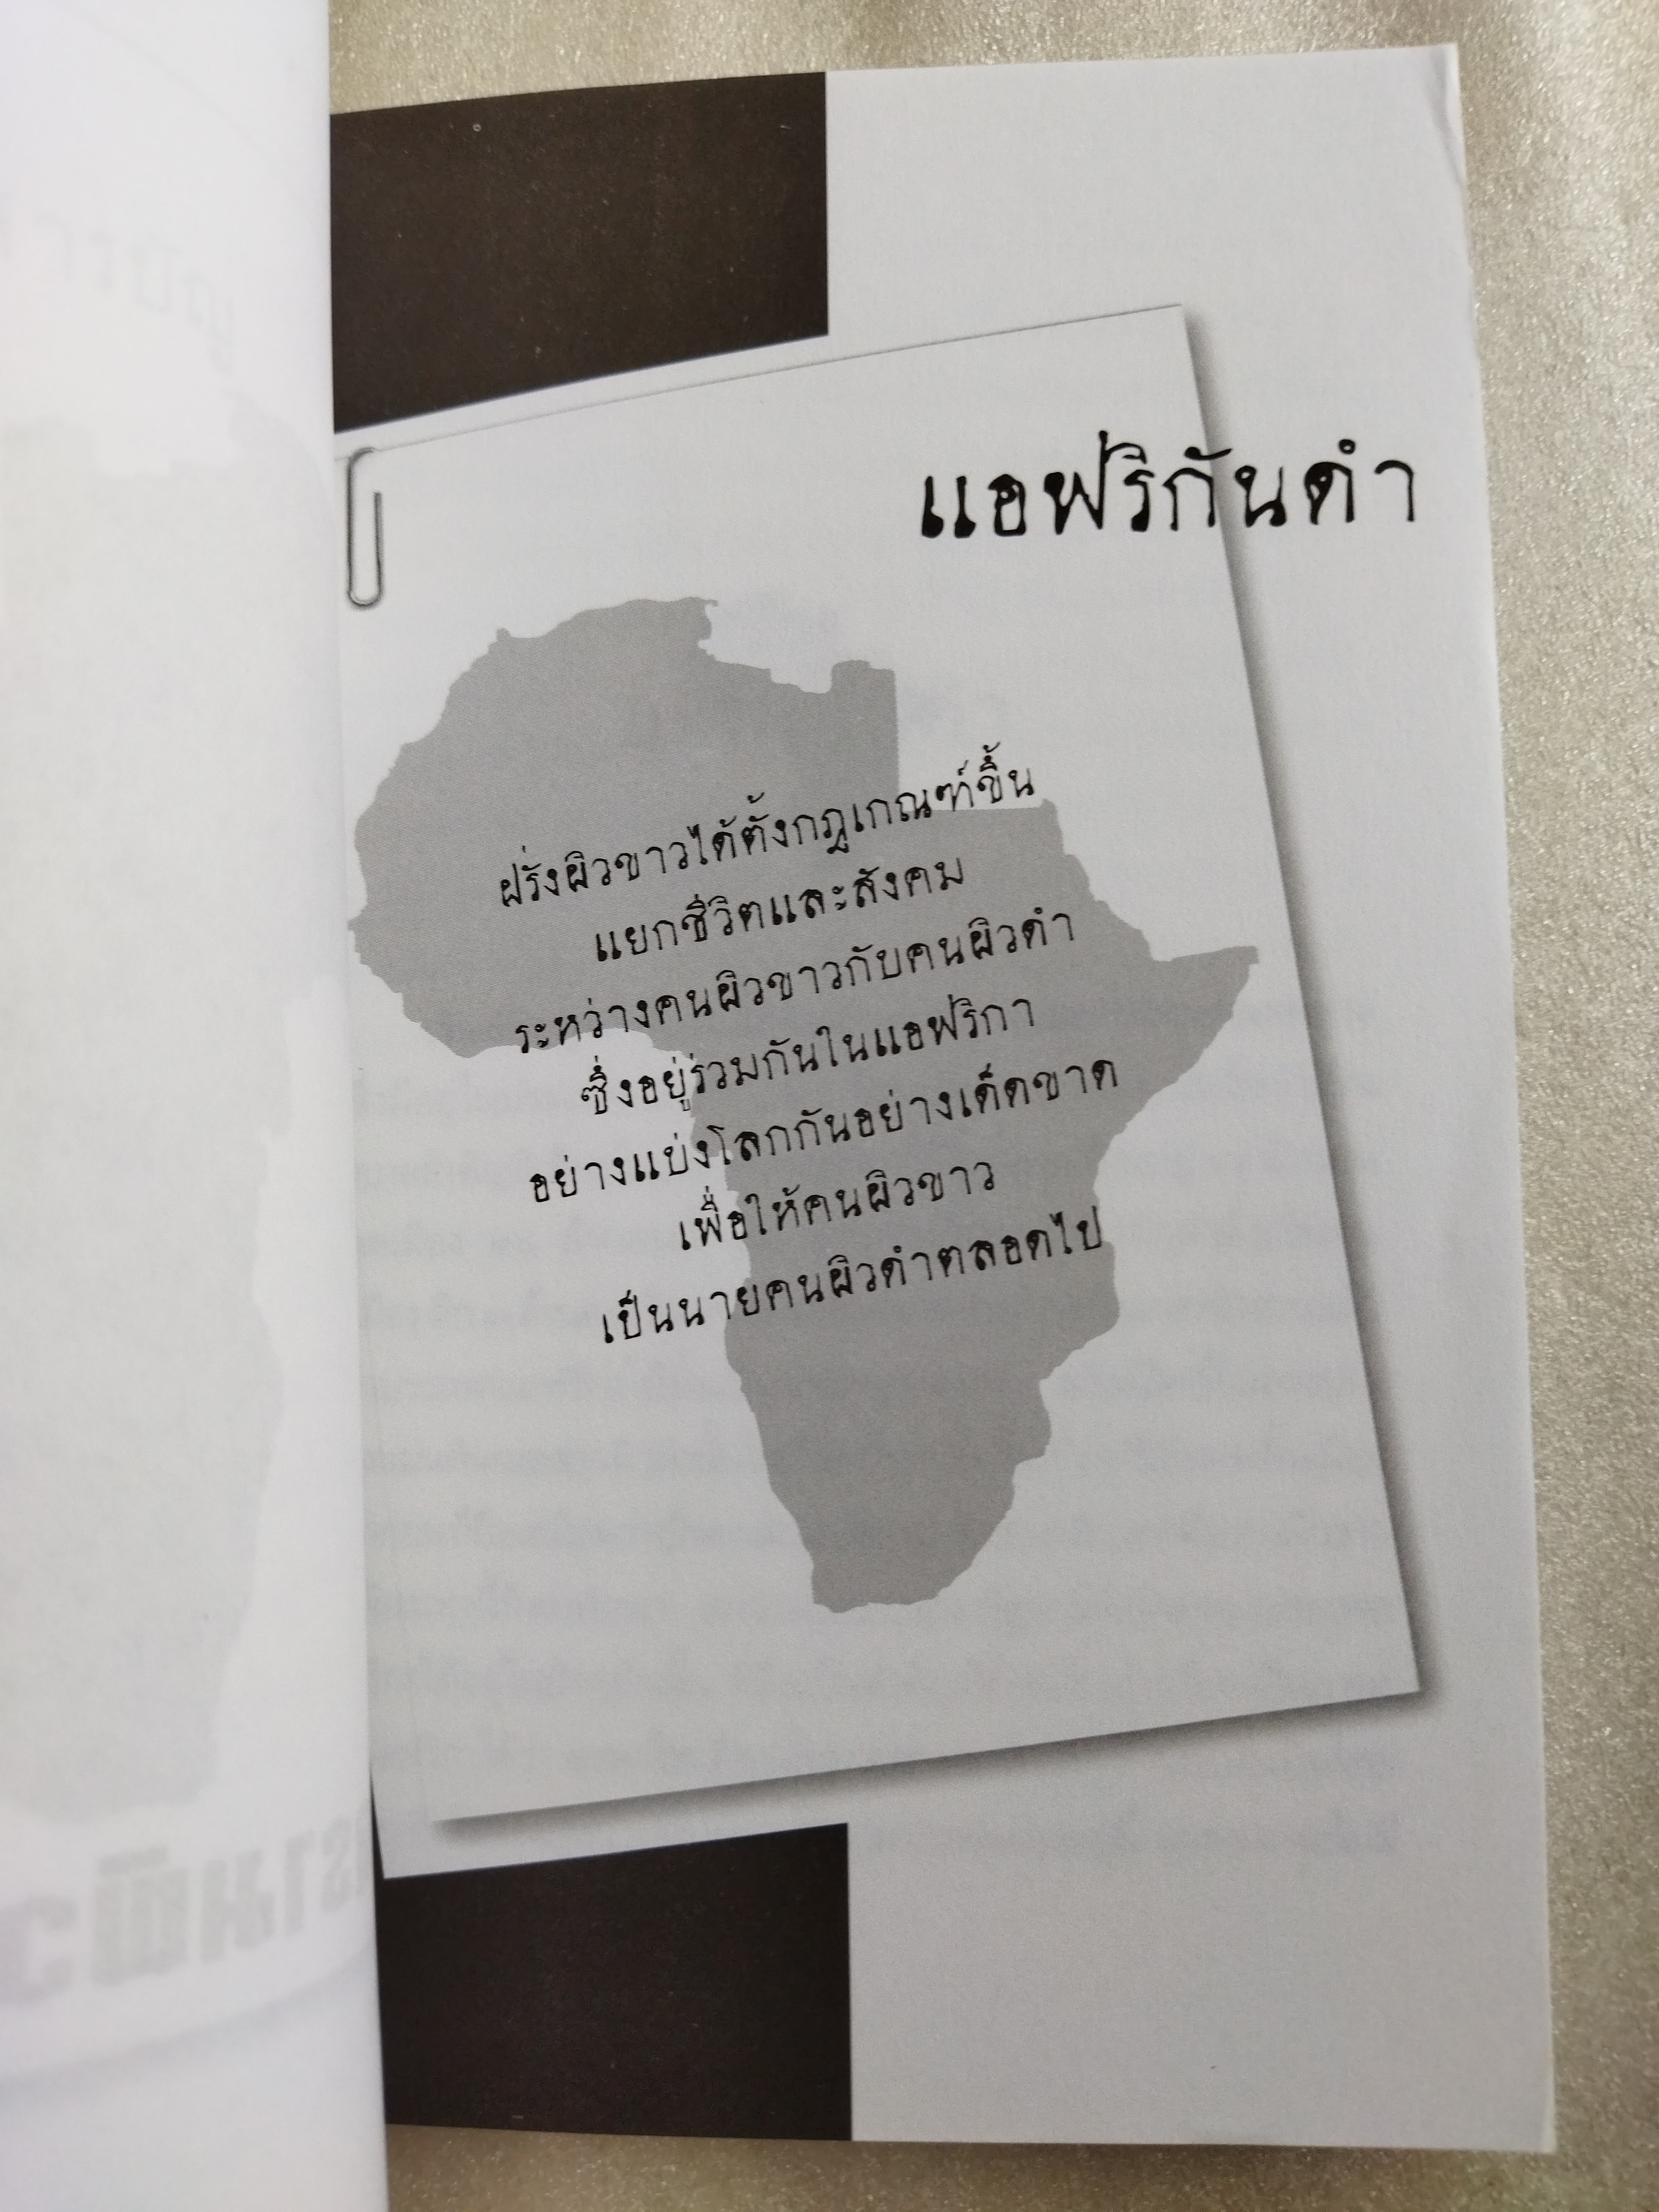 แอฟริกันดำ
ฝรั่งผิวขาวได้ตั้งกฎเกณฑ์ขึ้น
แยกชีวิตและสังคม
ระหว่างคนผิวขาวกับคนผิวดำ
ซึ่งอยู่ร่วมกันในแอฟริกา
อย่างแบ่งโลกกันอย่างเด็ดขาด
เพื่อให้คนผิวขาว
เป็นนายคนผิวดำตลอดไป